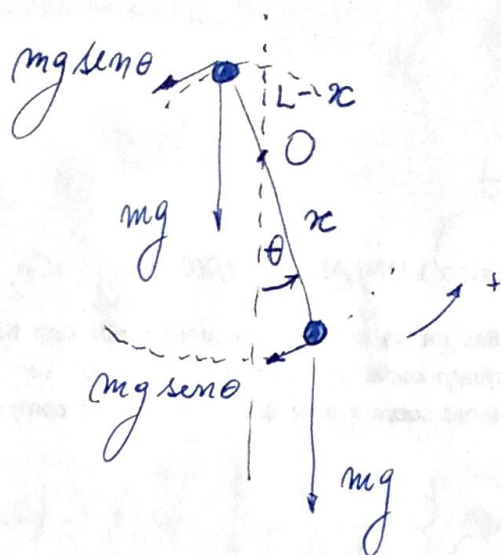 mg senθ
L-x
O
mg
x
θ
+
mg senθ
mg